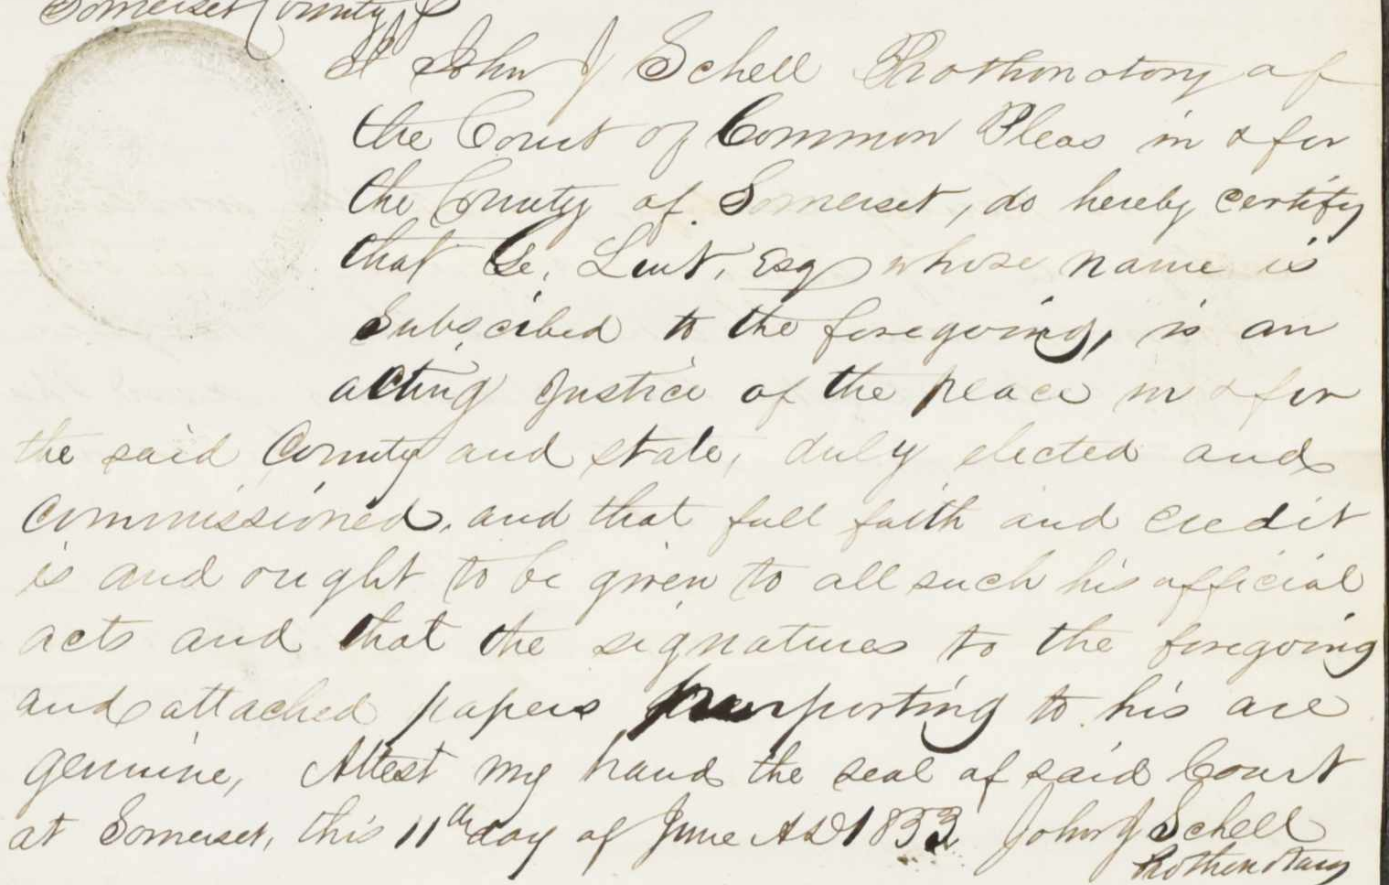 Somerset County, SS
I John J Schell Prothonotory of
the Court of Common Pleas in & for
the County of Somerset, do hereby certify
that Ge. Lint, Esq whose name is
Subscibed to the foregoing, is an
acting Justice of the peace in & for
the said County and state, duly elected and
commissioned, and that full faith and credit
is and ought to be given to all such his official
acts and that the signatures to the foregoing
and attached papers purporting to his are
genuine, Attest my hand the seal of said Court
at Somerset, this 11th day of June AD 1853 John J Schell
Prothonotary